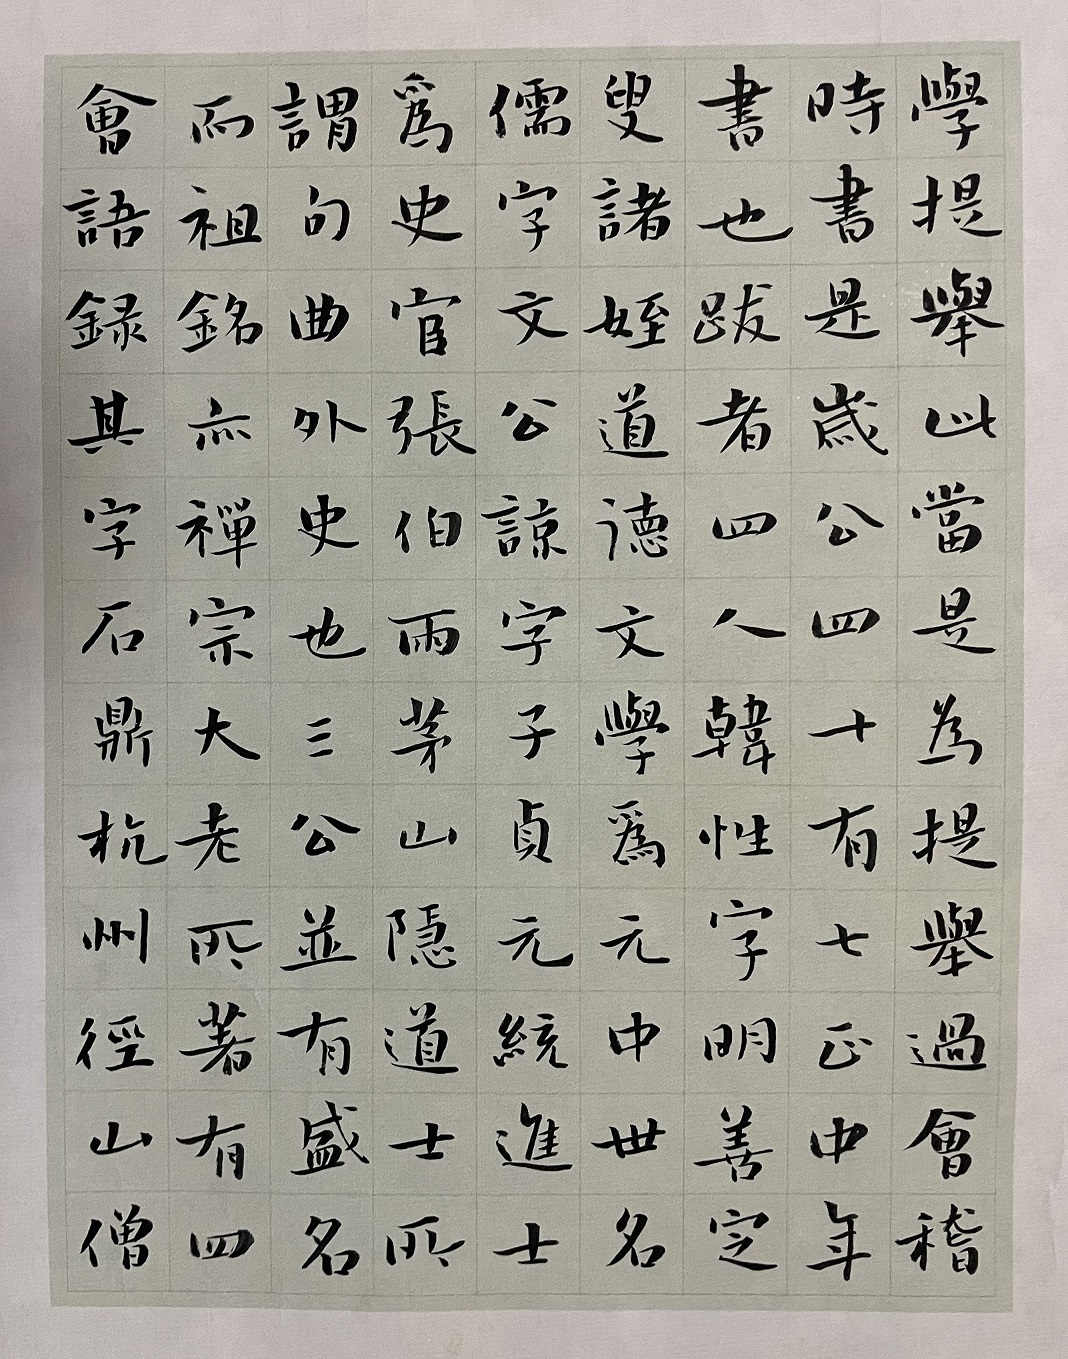 學提舉此當是為提舉過會稽
時書是歲公四十有七正中年
書也跋者四人韓性字明善定
叟諸姪道德文學爲元中世名
儒字文公諒字子貞元統進士
爲史官張伯雨茅山隱道士所
謂句曲外史也三公並有盛名
而祖銘亦禪宗大老所著有四
會語録其字石鼎杭州徑山僧